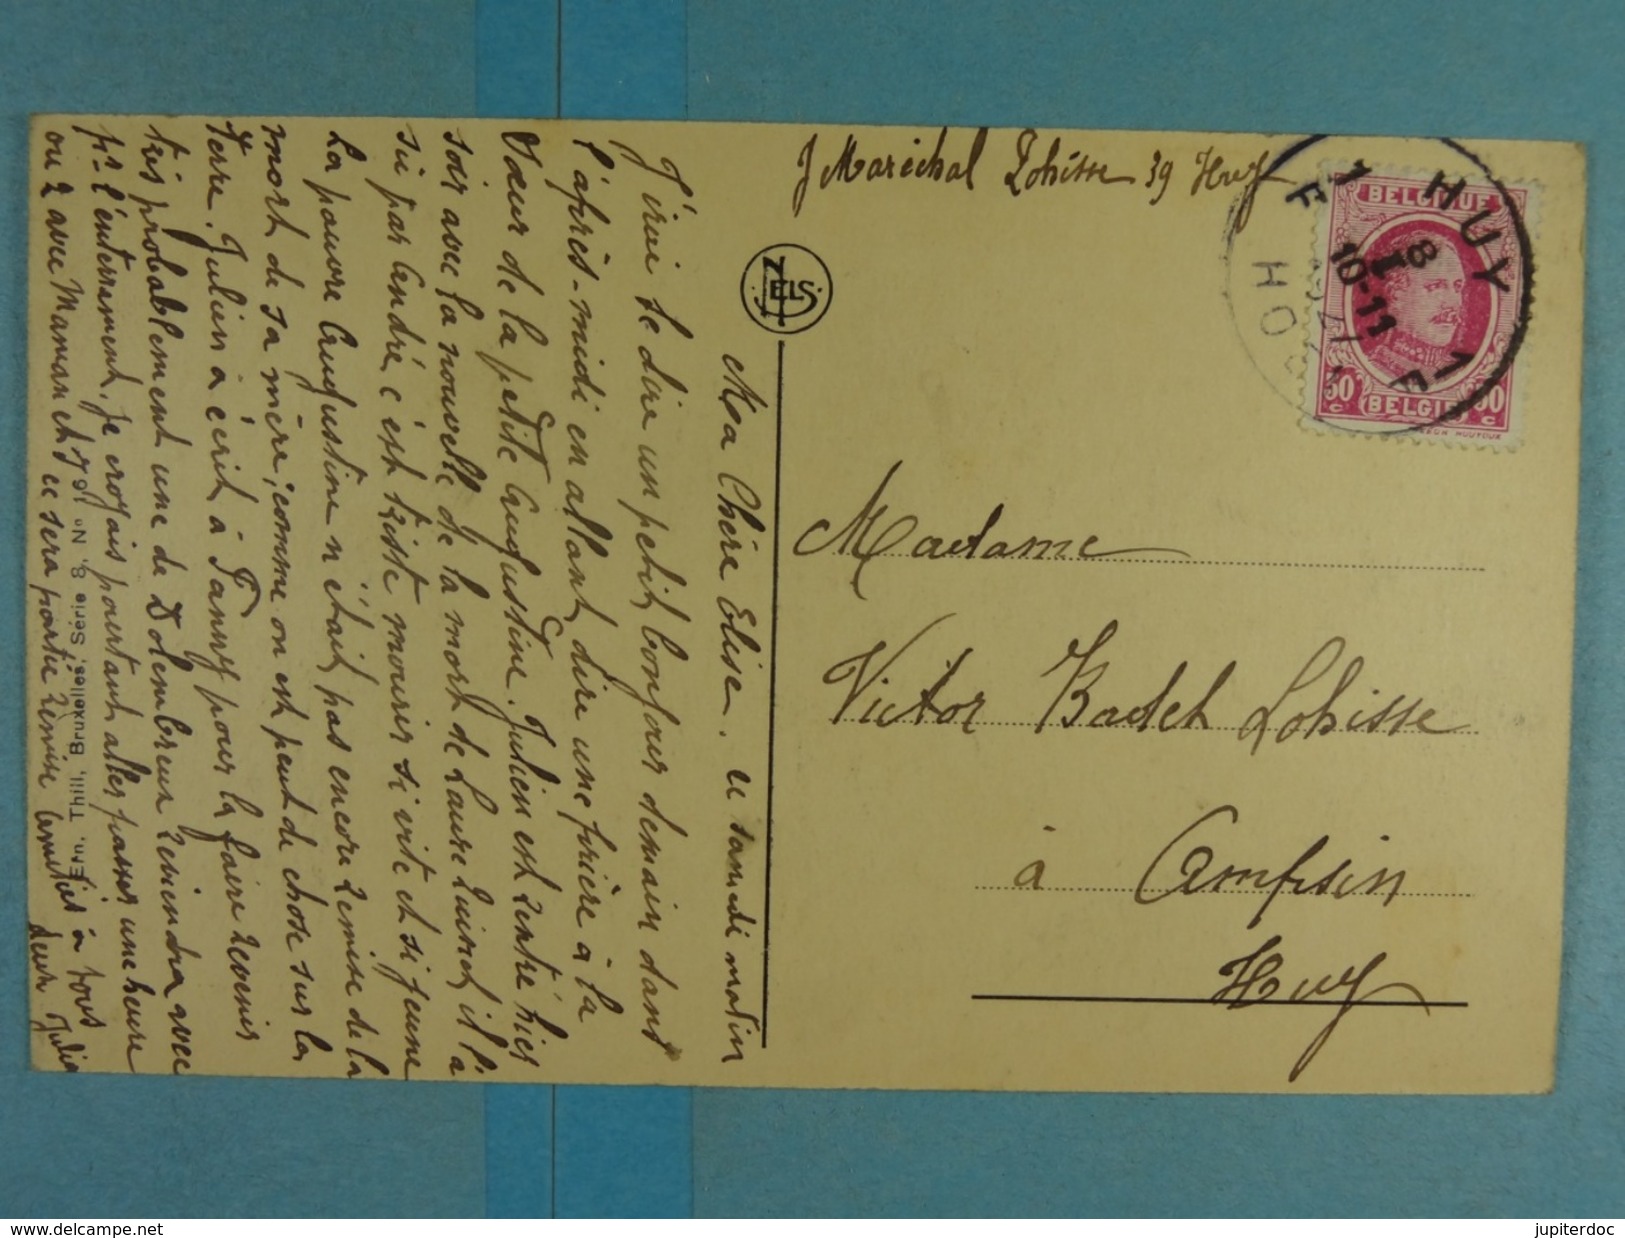 J Maréchal Lohisse 39 Huy
HUY 1E
HOEI 1E
8 I
10-11
BELGIQUE
BELGIË
NELS
Madame
Victor Badet Lohisse
à Ampsin
Huy
Ma Chère Elise. le samedi matin
J'irai te dire un petit bonjour demain dans
l'après-midi en allant dire une prière à la
Sœur de la petite Augustine. Julien est rentré hier
soir avec la nouvelle de la mort de Laure il l'a
su par André c'est triste mourir si vite et si jeune
La pauvre Augustine n'était pas encore remise de la
mort de sa mère, comme on est peut de chose sur la
terre. Julien a écrit à Fanny pour la faire revenir
très probablement une de Dolembreux reviendra avec
pr l'enterrement. Je croyais pourtant aller passer une heure
ou 2 avec Maman et ce sera partie remise Amitiés à tous
Julia
Ern. Thill, Bruxelles, Série 8, No 16